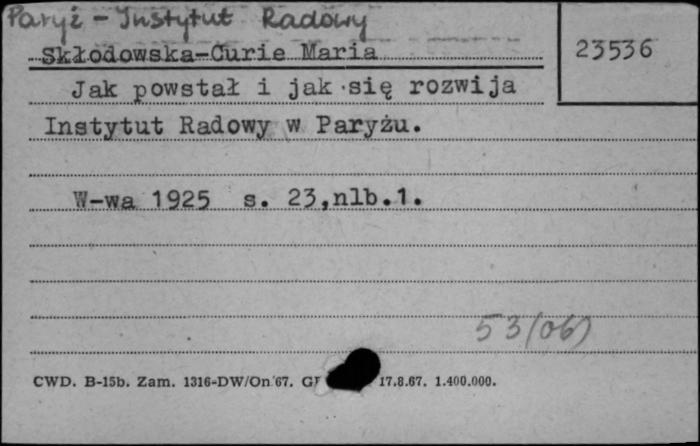 Paryż - Instytut Radowy
Skłodowska-Curie Maria
23536
Jak powstał i jak się rozwija
Instytut Radowy w Paryżu.
W-wa 1925 s. 23,nlb.1.
53/06)
CWD. B-15b. Zam. 1316-DW/On 67. 17.8.67. 1.400.000.